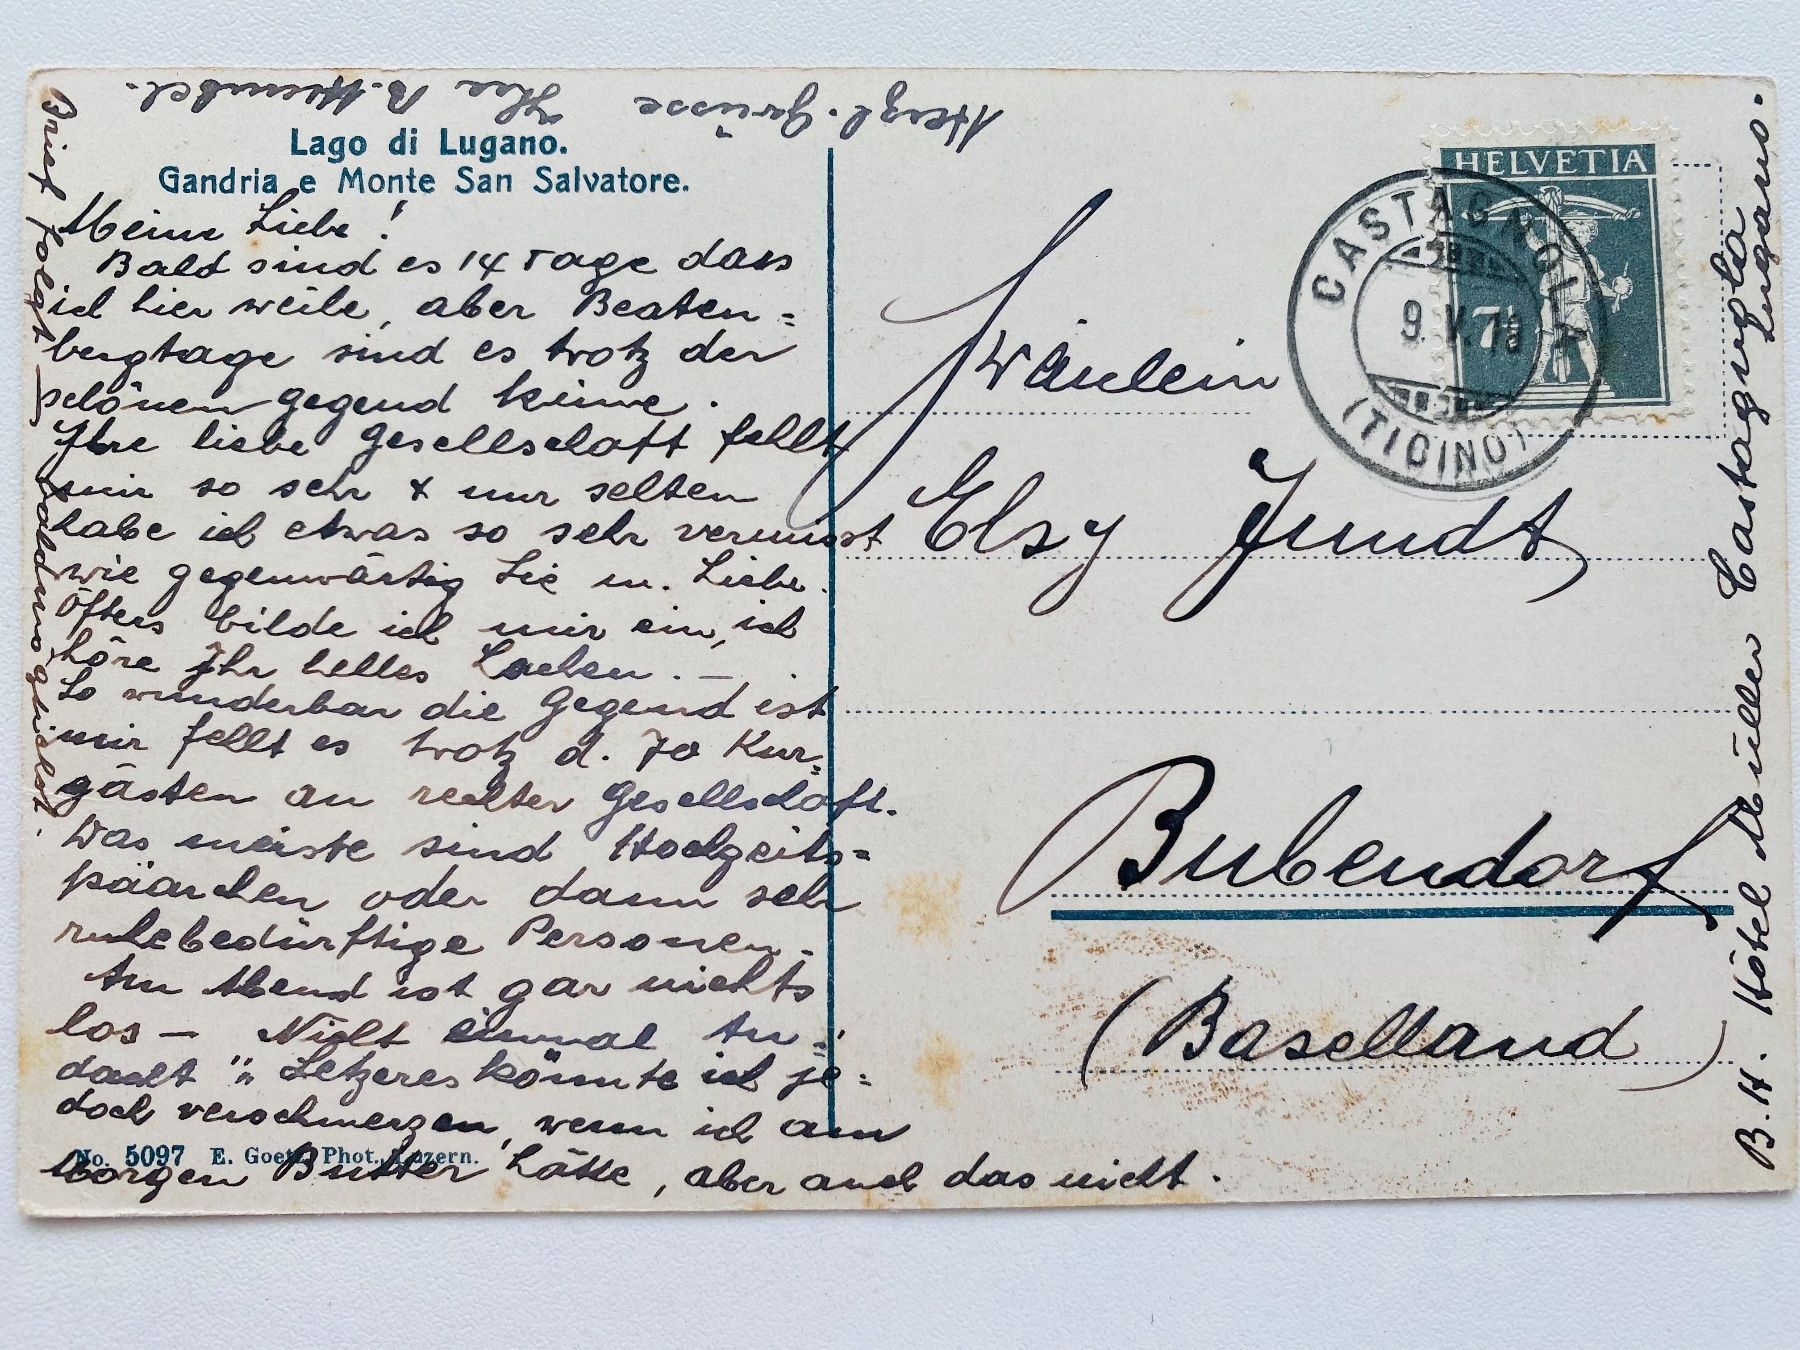 Lago di Lugano.
Gandria e Monte San Salvatore.
Meine Liebe!
Bald sind es 14 Tage dass
ich hier weile, aber Beaten=
bergtage sind es trotz der
schönen Gegend keine.
Ihre liebe Gesellschaft fehlt
mir so sehr & nur selten
habe ich etwas so sehr vermisst
wie gegenwärtig Sie m. Liebe.
Öfters bilde ich mir ein, ich
höre Ihr helles Lachen. —
So wunderbar die Gegend ist
mir fehlt es trotz d. 70 Kur=
gästen an rechter Gesellschaft.
Was meiste sind Hochzeits=
päärchen oder dann sehr
ruhebedürftige Personen.
Am Abend ist gar nichts
los — Nicht einmal "An=
dacht"" Letzeres könnte ich je=
doch verschmerzen, wenn ich am
Morgen Butter hätte, aber auch das nicht.
Brief folgt baldmöglichst.
Herzl. Grüsse Ihr B.
No. 5097 E. Goetz, Phot., Luzern.
HELVETIA
7½
CASTAGNOLA
9.V.18
(TICINO)
Fräulein
Elsy Jundt
Bubendorf
(Baselland)
B. H. Hôtel Müller Castagnola
Lugano.